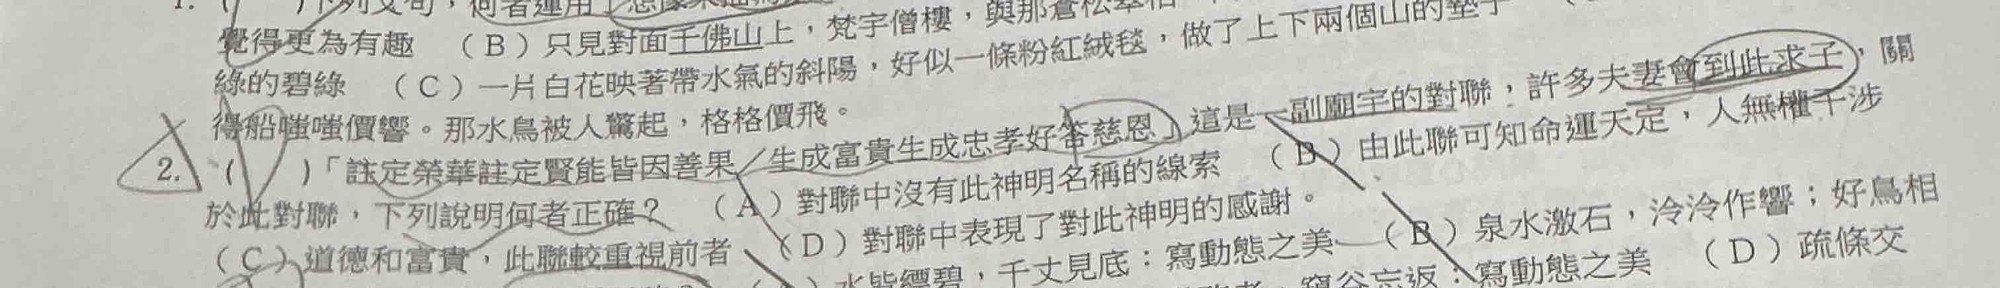 1. ( )下列文句,何者運用了想像
覺得更為有趣 (B)只見對面千佛山上,梵宇僧樓,與那蒼松翠柏
綠的碧綠 (C)一片白花映著帶水氣的斜陽,好似一條粉紅絨毯,做了上下兩個山的墊子
得船嗤嗤價響。那水鳥被人驚起,格格價飛。
2. ( )「註定榮華註定賢能皆因善果/生成富貴生成忠孝好答慈恩」這是一副廟宇的對聯,許多夫妻會到此求子,關
於此對聯,下列說明何者正確? (A)對聯中沒有此神明名稱的線索 (B)由此聯可知命運天定,人無權干涉
(C)道德和富貴,此聯較重視前者 (D)對聯中表現了對此神明的感謝。
水皆縹碧,千丈見底:寫動態之美 (B)泉水激石,泠泠作響;好鳥相
窺谷忘返:寫動態之美 (D)疏條交